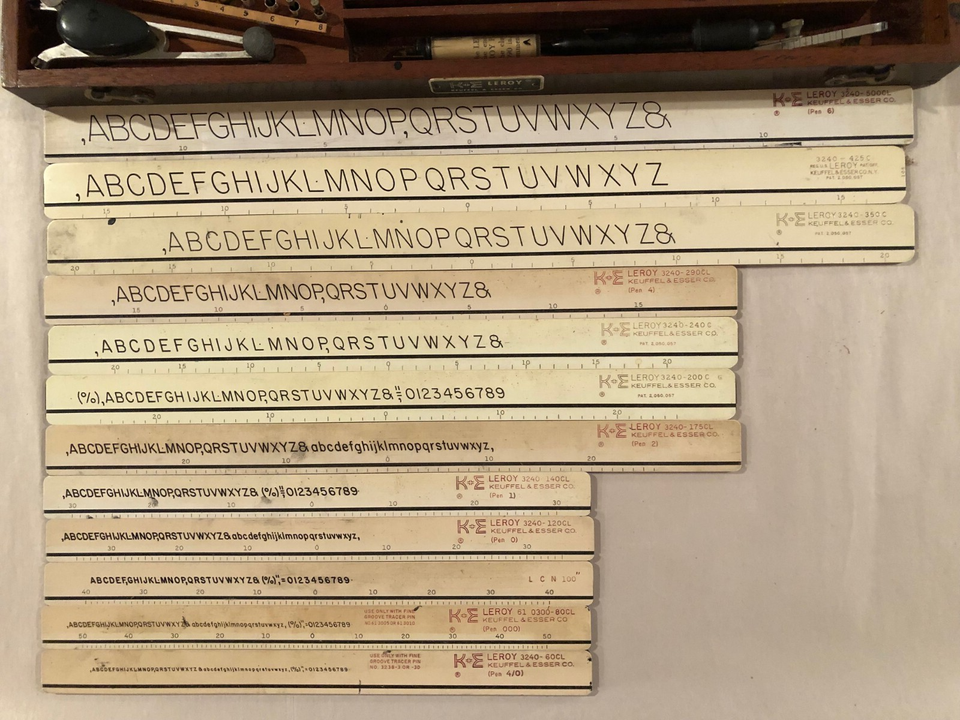 1 2 3 4 5 6 7 8
K+E LEROY
,ABCDEFGHIJKLMNOP,QRSTUVWXYZ&
K+E LEROY 3240-500CL
KEUFFEL & ESSER CO.
(Pen 6)
10 5 0 5 10
,ABCDEFGHIJKLMNOPQRSTUVWXYZ
3240-425C
LEROY
KEUFFEL & ESSER CO. N.Y.
PAT. 2,060,067
15 10 5 0 5 10 15
,ABCDEFGHIJKLMNOPQRSTUVWXYZ&
K+E LEROY 3240-350C
KEUFFEL & ESSER CO.
PAT. 2,060,067
20 15 10 5 0 5 10 15 20
,ABCDEFGHIJKLMNOP,QRSTUVWXYZ&
K+E LEROY 3240-290CL
KEUFFEL & ESSER CO.
® (Pen 4)
15 10 5 0 5 10 15
,ABCDEFGHIJKLMNOP,QRSTUVWXYZ&
K+E LEROY 3240-240C
KEUFFEL & ESSER CO.
PAT. 2,060,067
20 15 10 5 0 5 10 15 20
(%),ABCDEFGHIJKLMNOP,QRSTUVWXYZ& 0123456789
K+E LEROY 3240-200C 6
KEUFFEL & ESSER CO.
® PAT. 2,060,067
20 10 0 10 20
,ABCDEFGHIJKLMNOP,QRSTUVWXYZ& abcdefghijklmnopqrstuvwxyz,
K+E LEROY 3240-175CL
KEUFFEL & ESSER CO.
® (Pen 2)
20 10 0 10 20
,ABCDEFGHIJKLMNOP,QRSTUVWXYZ& (%) 0123456789
K+E LEROY 3240-140CL
KEUFFEL & ESSER CO.
® (Pen 1)
30 20 10 0 10 20 30
,ABCDEFGHIJKLMNOP,QRSTUVWXYZ& abcdefghijklmnopqrstuvwxyz,
K+E LEROY 3240-120CL
KEUFFEL & ESSER CO.
® (Pen 0)
30 20 10 0 10 20 30
ABCDEFGHIJKLMNOP,QRSTUVWXYZ& (%)",=0123456789
L C N 100"
40 30 20 10 0 10 20 30 40
,ABCDEFGHIJKLMNOP,QRSTUVWXYZ& abcdefghijklmnopqrstuvwxyz, (%) 0123456789
USE ONLY WITH FINE
GROOVE TRACER PIN
K+E LEROY 61 0300-80CL
KEUFFEL & ESSER CO.
® (Pen 000)
50 40 30 20 10 0 10 20 30 40 50
,ABCDEFGHIJKLMNOP,QRSTUVWXYZ& abcdefghijklmnopqrstuvwxyz, (%) 0123456789
USE ONLY WITH FINE
GROOVE TRACER PIN
K+E LEROY 3240-60CL
KEUFFEL & ESSER CO.
® (Pen 4/0)